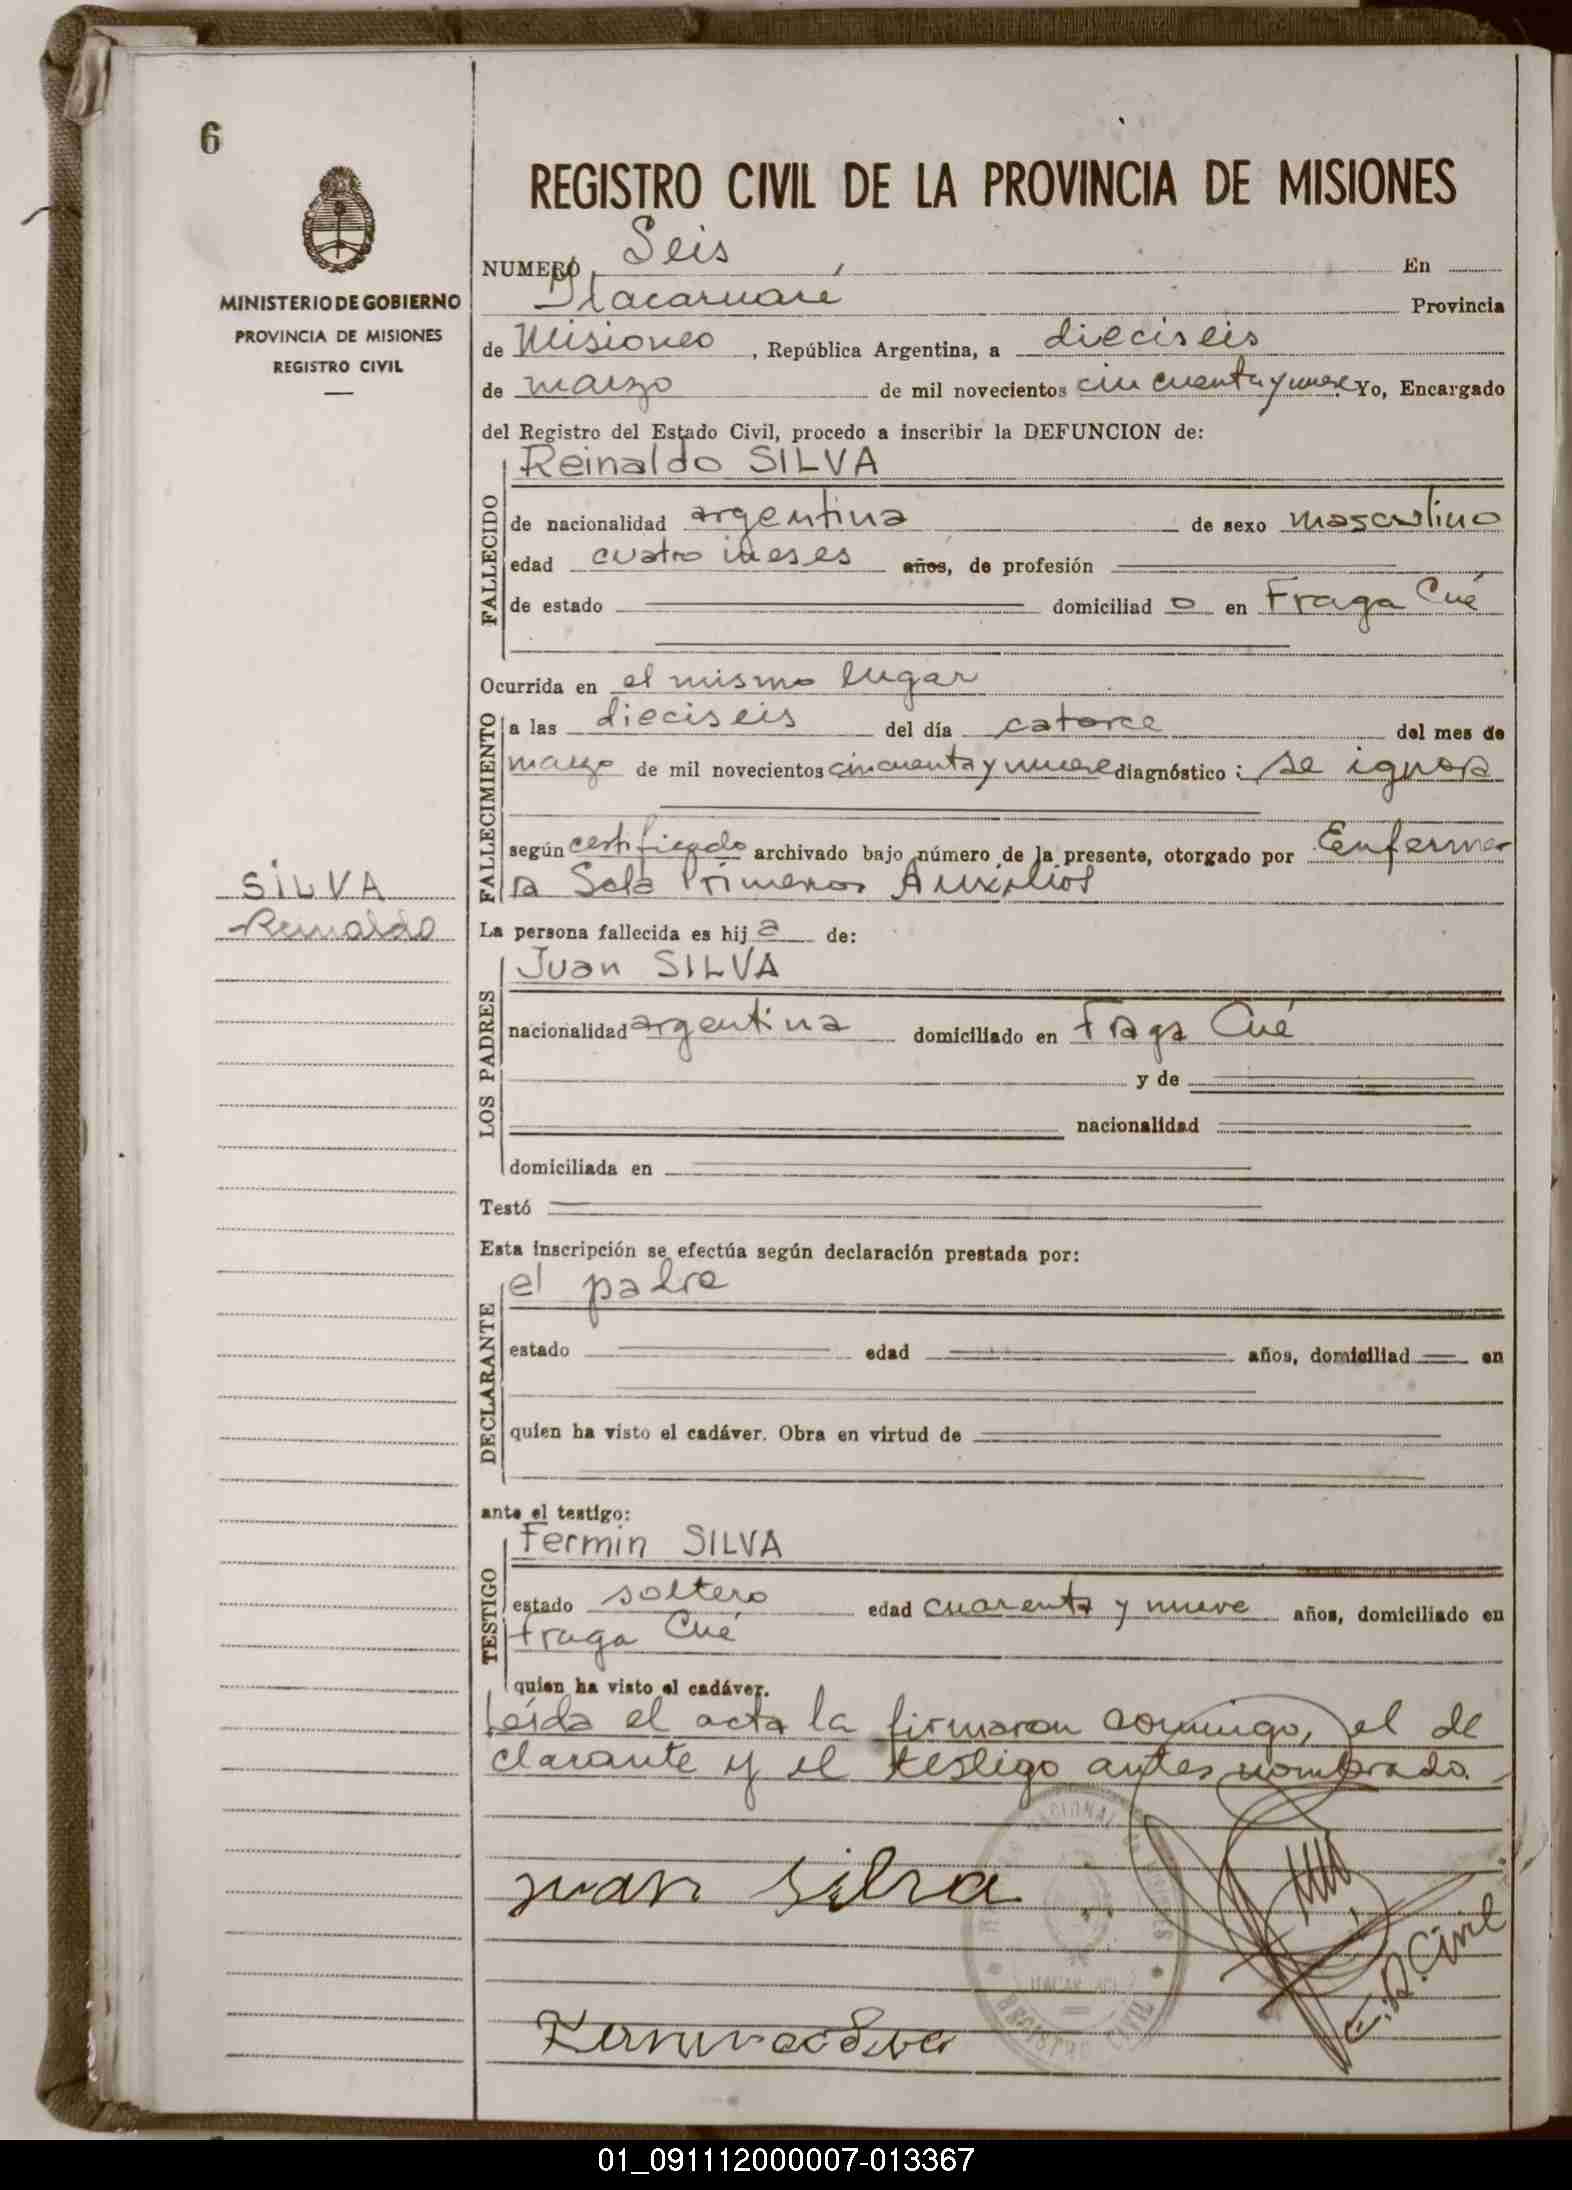 6
MINISTERIO DE GOBIERNO
PROVINCIA DE MISIONES
REGISTRO CIVIL
REGISTRO CIVIL DE LA PROVINCIA DE MISIONES
NUMERO Seis En
Itacaruaré Provincia
de Misiones, República Argentina, a dieciseis
de marzo de mil novecientos cincuenta y nueve Yo, Encargado
del Registro del Estado Civil, procedo a inscribir la DEFUNCION de:
FALLECIDO
Reinaldo SILVA
de nacionalidad argentina de sexo masculino
edad cuatro meses años, de profesión
de estado domiciliad o en Fraga Cué
Ocurrida en el mismo lugar
FALLECIMIENTO
a las dieciseis del día catorce del mes de
marzo de mil novecientos cincuenta y nueve diagnóstico: se ignora
según certificado archivado bajo número de la presente, otorgado por Enferme
ra Sala Primeros Auxilios
SILVA
Reinaldo
La persona fallecida es hij a de:
LOS PADRES
Juan SILVA
nacionalidad argentina domiciliado en Fraga Cué
y de
nacionalidad
domiciliada en
Testó
Esta inscripción se efectúa según declaración prestada por:
DECLARANTE
el padre
estado edad años, domiciliad en
quien ha visto el cadáver. Obra en virtud de
ante el testigo:
TESTIGO
Fermin SILVA
estado soltero edad cuarenta y nueve años, domiciliado en
Fraga Cué
quien ha visto el cadáver.
Leída el acta la firmaron conmigo, el de
clarante y el testigo antes nombrado.
juan silva
E. R. Civil
REGISTRO CIVIL
01_091112000007-013367